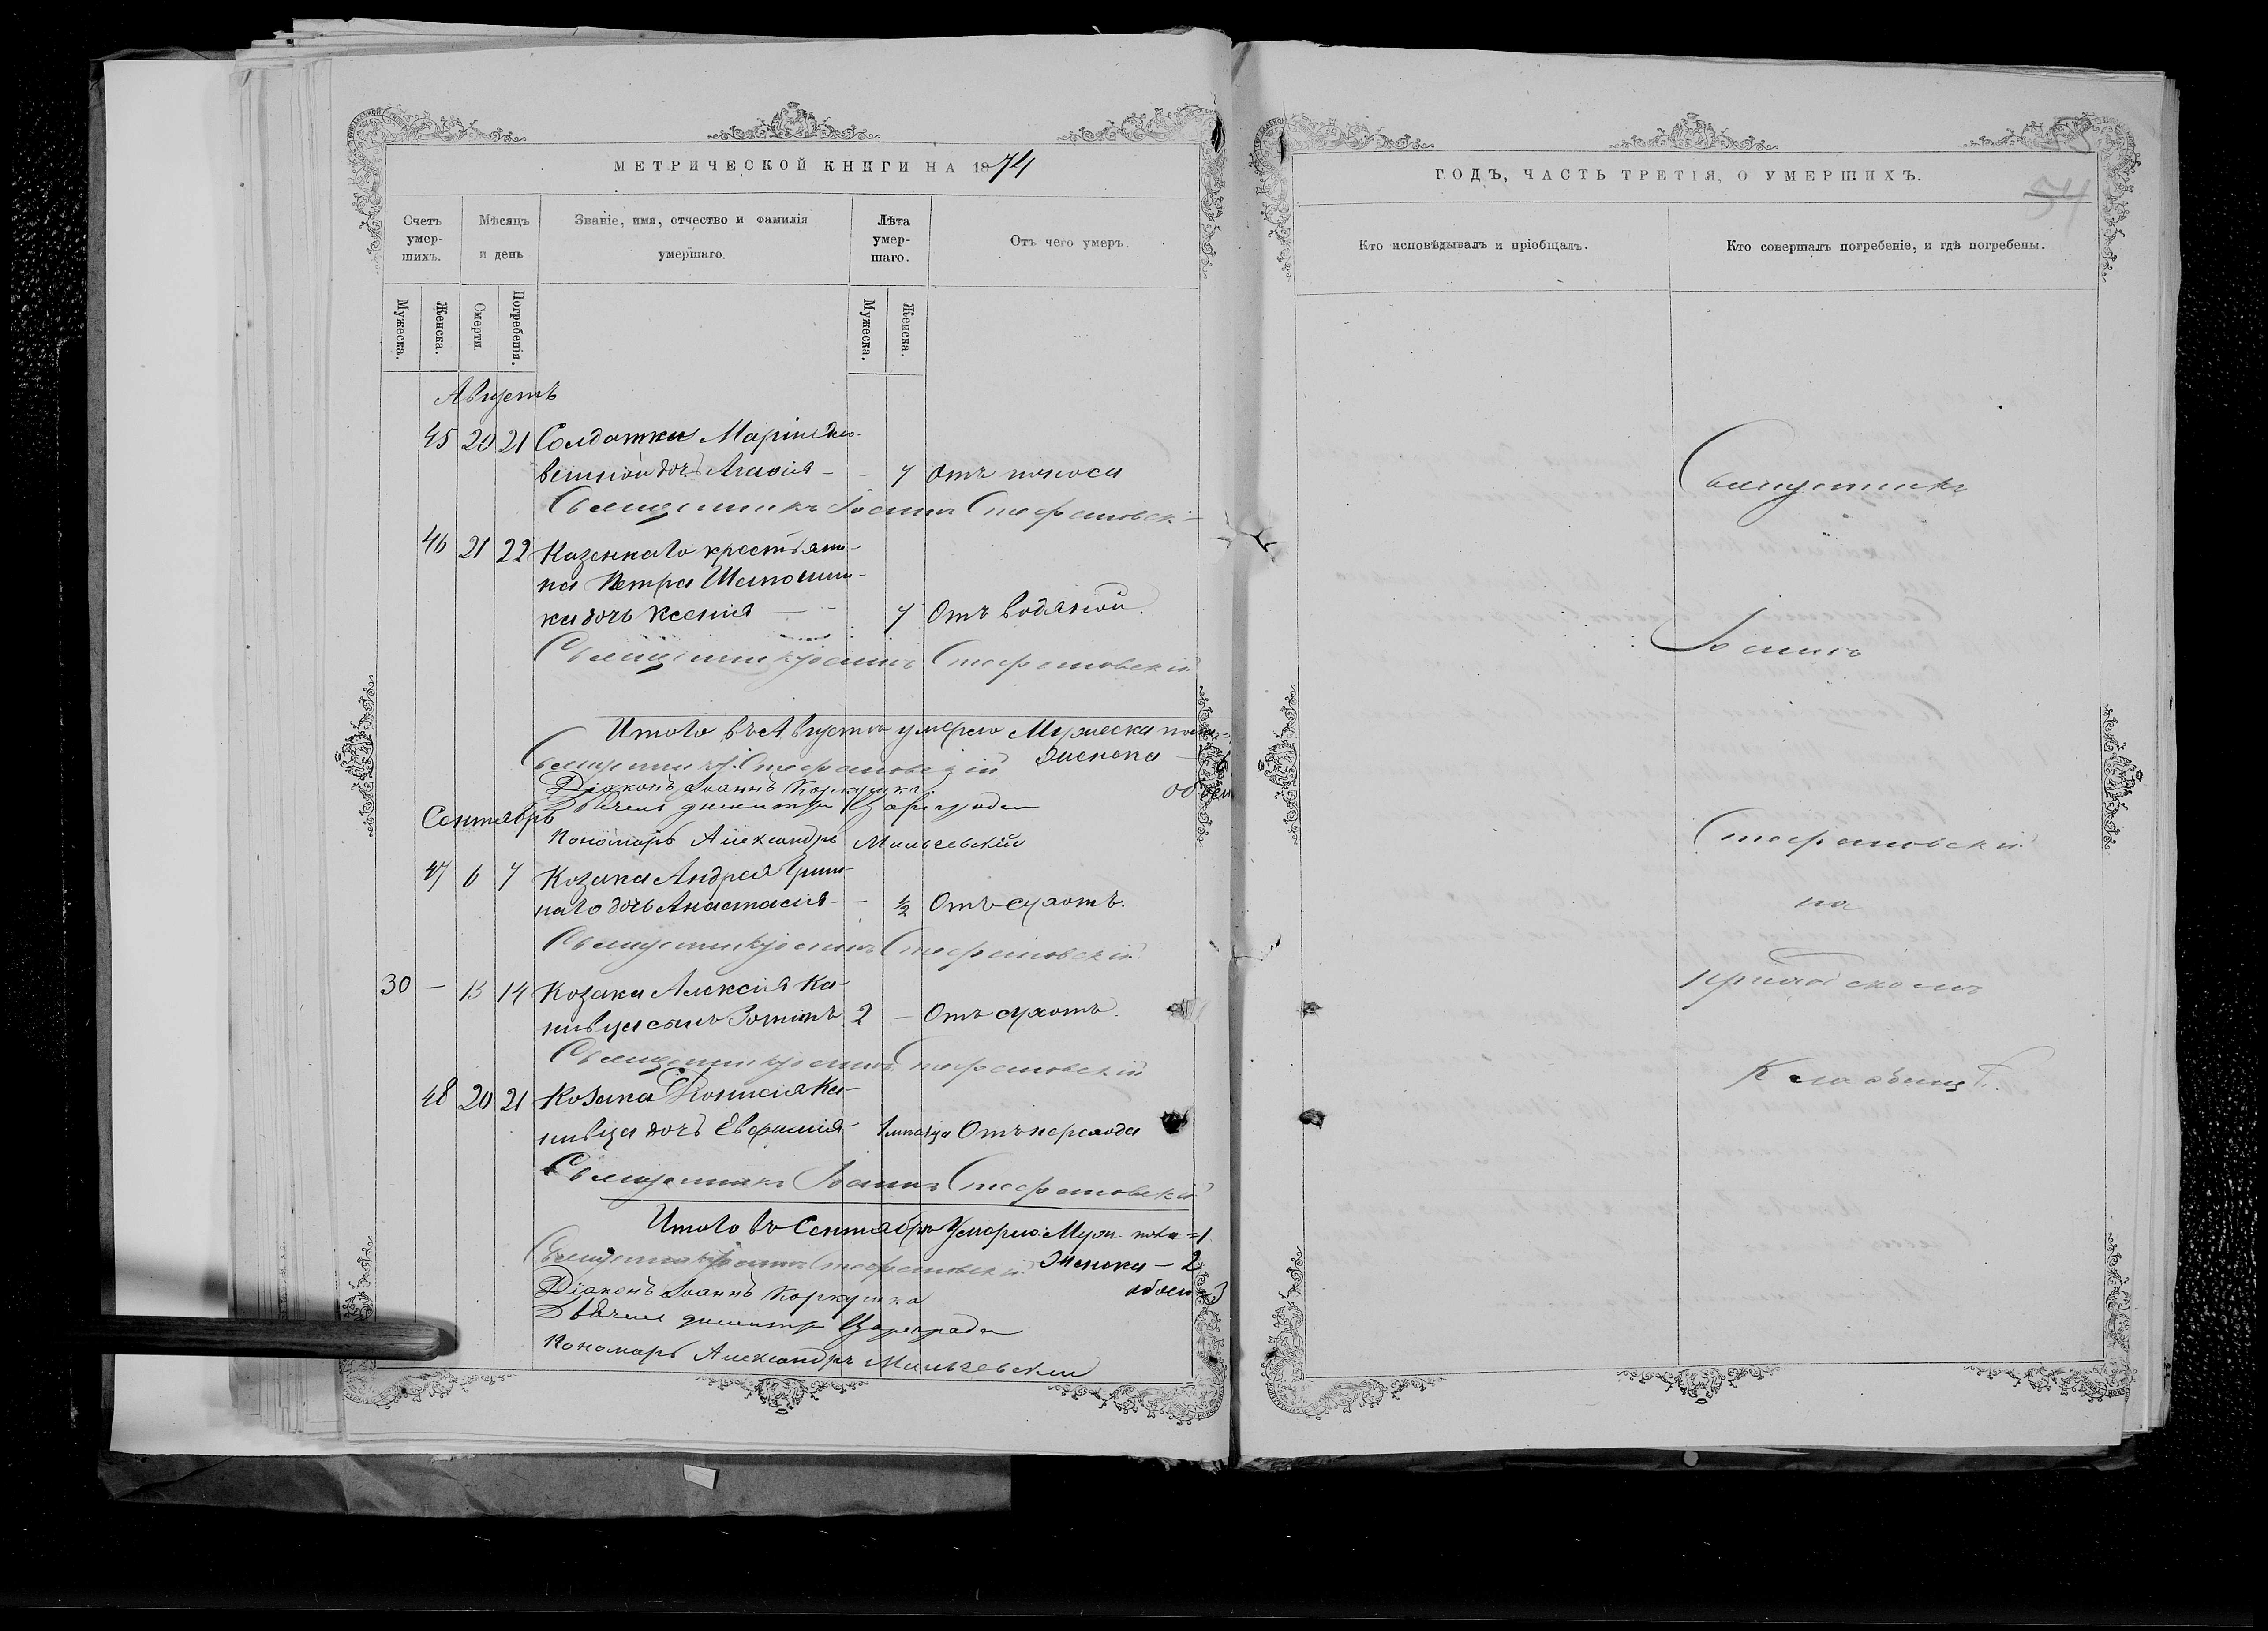 МЕТРИЧЕСКОЙ КНИГИ НА 1874
Счетъ умер-шихъ.
Мѣсяцъ и день
Званіе, имя, отчество и фамилія умершаго.
Лѣта умер-шаго.
Отъ чего умеръ.
Мужеска.
Женска.
Смерти.
Погребенія.
Мужеска.
Женска.
Августъ
45 20 21 Солдатки Маріи
дочь Агафія – – 7 Отъ поноса
Священникъ Іоаннъ Стефановскі
46 21 22 Казеннаго крестьяни-
на Петра
ка дочь Ксенія — – 7 Отъ водяной.
Священникъ Іоаннъ Стефановскій
Итого въ Августѣ умерло Мужеска пола
Священникъ І. Стефановскій Женска – 6
Діаконъ Іоаннъ Коркушка обоего
Сентябрь
Дьячекъ Димитрій Цареградск
Пономарь Александръ Мильчевскій
47 6 7 Козака Андрея
наго дочь Анастасія – – ½ Отъ сухотъ.
Священникъ Іоаннъ Стефановскій
30 — 13 14 Козака Алексія Ка-
нивца сынъ Зотикъ 2 – Отъ сухотъ.
Священникъ Іоаннъ Стефановскій
48 20 21 Козака Ка-
нивца дочь Евфимія – 1 мѣсяца Отъ перелода
Священникъ Іоаннъ Стефановскій
Итого въ Сентябрѣ Умерло: Муж. пола = 1
Священникъ Іоаннъ Стефановскій Женска – 2
Діаконъ Іоаннъ Коркушка обоего 3
Дьячекъ Димитрій Цареградск
Пономарь Александръ Мильчевскій
ГОДЪ, ЧАСТЬ ТРЕТІЯ, О УМЕРШИХЪ.
54
Кто исповѣдывалъ и пріобщалъ.
Кто совершалъ погребеніе, и гдѣ погребены.
Священникъ
Іоаннъ
Стефановскій
на
приходскомъ
Кладбищѣ.